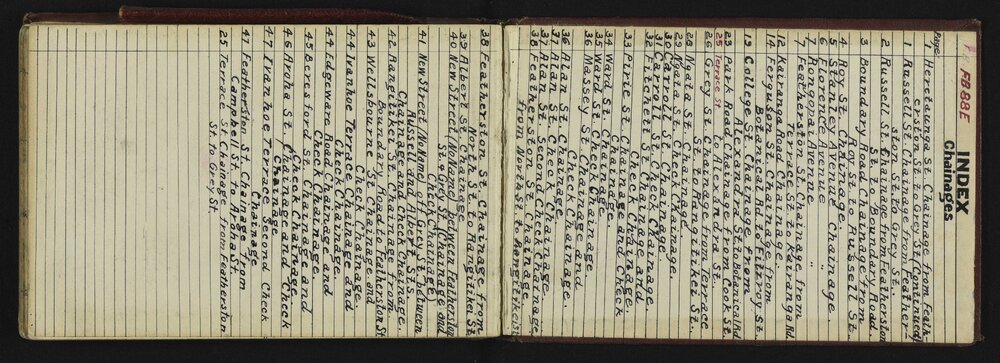 FB 88 E
INDEX
Chainages
Page
1 Heretaunga St. Chainage from Feath-
erston St to Grey St Continued
1 Russell St. Chainage from Feather-
ston St. to Grey St.
2 Russell St. Chainage from Featherston
St to Boundary Road
3 Boundary Road Chainage from
Roy St to Russell St.
4 Roy St. Chainage
5 Stanley Avenue Chainage.
6 Florence Avenue "
7 Rongopai Avenue "
7 Featherston St. Chainage from
Terrace St to Kairanga Rd.
12 Kairanga Road Chainage.
14 Ferguson St. Chainage from
Botanical Rd. to Fitzroy St.
19 College St. Chainage from
Alexandra St. to Botanical Rd
23 Park Road Chainage from Cook St.
to Alexandra St.
25 Terrace St
26 Grey St Chainage from Terrace
St. to Rangitikei St.
28 Ngata St. Chainage.
29 Ngata St. Check Chainage.
30 Carroll St. Chainage
31 Carroll St. Check Chainage.
32 Pitchers Chainage
33 Pirie St. Chainage and
Check Chainage
34 Ward St. Chainage and Check
35 Ward St. Check Chainage
36 Massey St. Chainage and
Check Chainage
36 Alan St. Chainage
37 Alan St. Check Chainage
37 Alan St. Second Check Chainage.
38 Featherston St. Chainage
from North St. to Rangitikei St
38 Featherston St. Chainage from
North St. to Rangitikei St
39 Albert St. Chainage
40 New Street (No Name) between Featherston
St. & Grey St. (Chainage and
Check Chainage)
41 New Street (No Name) Grey St. between
Russell and Albert Sts.
Chainage and Check Chainage.
42 Rangitikei St. Chainage from
Boundary Road to Featherston St.
43 Wellsbourne St Chainage and
Check Chainage.
44 Ivanhoe Terrace Chainage and
Check Chainage.
44 Edgeware Road Chainage and
Check Chainage.
45 Beresford St. Chainage and
Check Chainage.
46 Aroha St. Chainage and Check
Chainage
47 Ivanhoe Terrace Second Check
Chainage
47 Featherston St. Chainage from
Campbell St. to Aroha St.
25 Terrace St Chainage from Featherston
St. to Grey St.